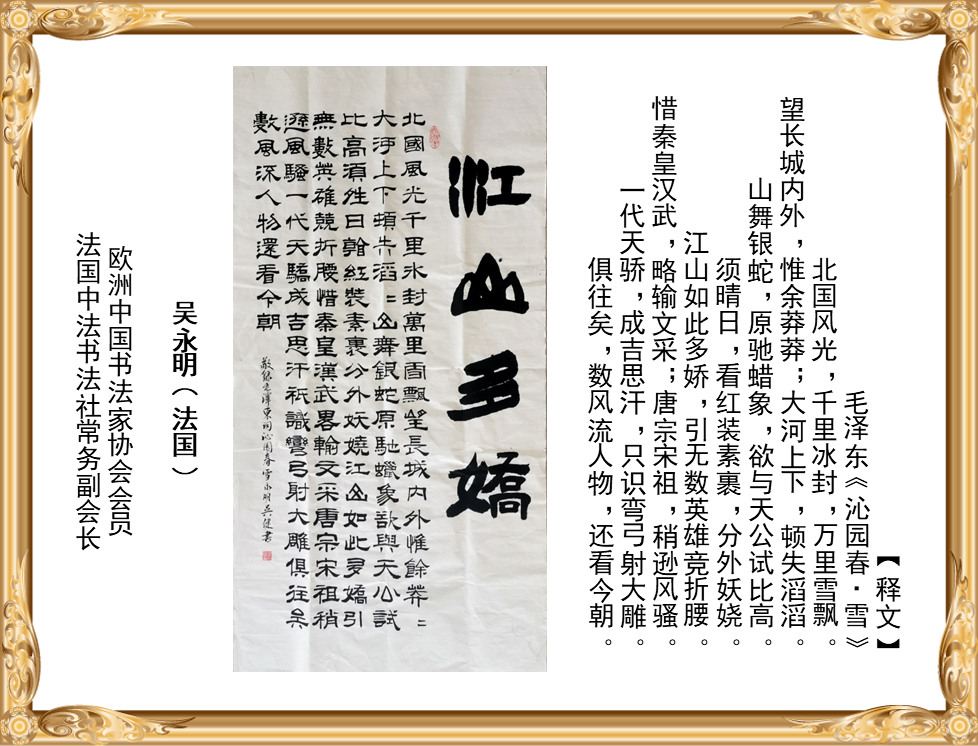 【释文】
毛泽东《沁园春·雪》
北国风光，千里冰封，万里雪飘。
望长城内外，惟余莽莽；大河上下，顿失滔滔。
山舞银蛇，原驰蜡象，欲与天公试比高。
须晴日，看红装素裹，分外妖娆。
江山如此多娇，引无数英雄竞折腰。
惜秦皇汉武，略输文采；唐宗宋祖，稍逊风骚。
一代天骄，成吉思汗，只识弯弓射大雕。
俱往矣，数风流人物，还看今朝。
江山多嬌
北國風光千里冰封萬里雪飄望長城内外惟餘莽〻
大河上下頓失滔〻山舞銀蛇原馳蠟象欲與天公試
比高須晴日看紅裝素裹分外妖嬈江山如此多嬌引
無數英雄競折腰惜秦皇漢武畧輸文采唐宗宋祖稍
遜風騷一代天驕成吉思汗祇識彎弓射大雕俱往矣
數風流人物還看今朝
敬錄毛澤東詞沁園春雪永明書
吴永明（法国）
欧洲中国书法家协会会员
法国中法书法社常务副会长